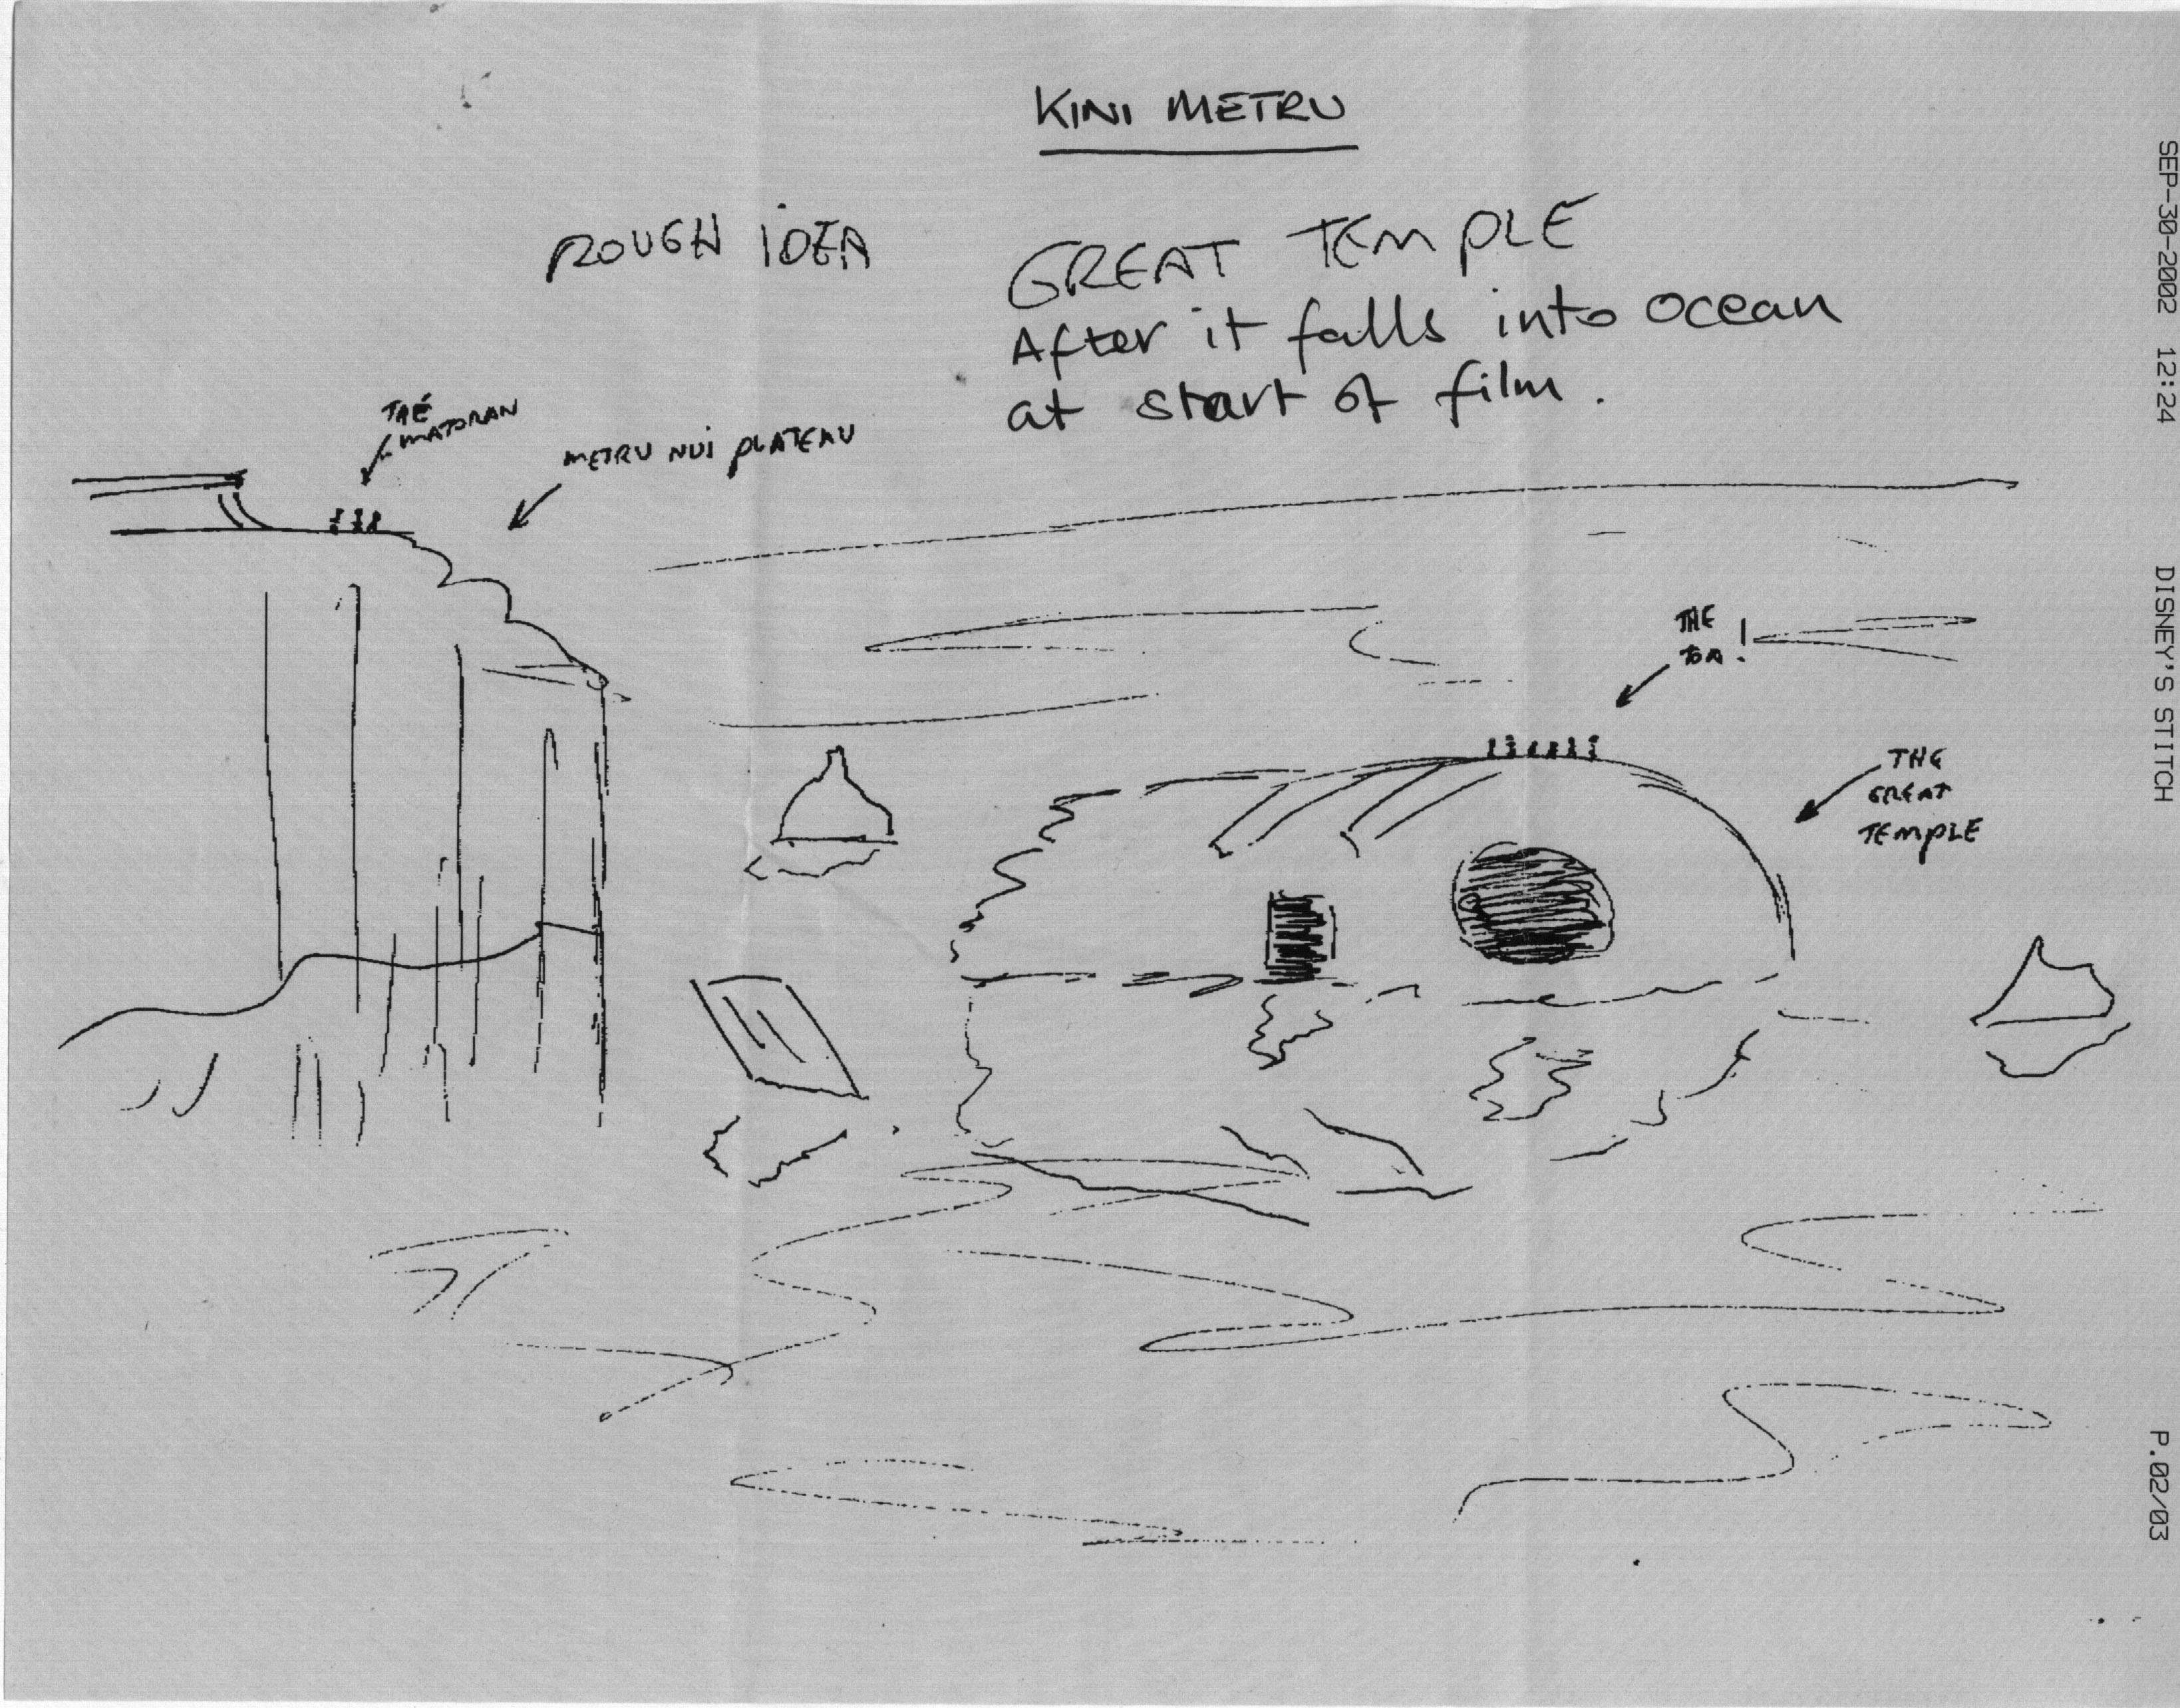 KINI METRU
ROUGH IDEA
GREAT TEMPLE
After it falls into ocean
at start of film.
THE
MATORAN
METRU NUI PLATEAU
THE
TOA!
THE
GREAT
TEMPLE
SEP-30-2002 12:24 DISNEY'S STITCH P.02/03